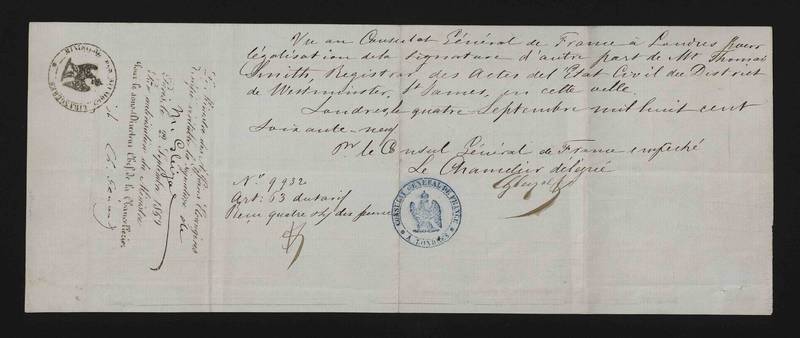 Vu au Consulat Général de France à Londres pour
légalisation de la signature d'autre part de Mr Thomas
Smith, Registrar des Actes del Etat Civil du District
de Westminster, St James, en cette ville.
Londres, le quatre Septembre mil huit cent
soixante-neuf
Pr le Consul Général de France empêché
Le Chancelier délégué
No 9932
Art: 63 du tarif
Reçu quatre sh/ des pence
CONSULAT GENERAL DE FRANCE
A LONDRES
Le Ministre des Affaires Etrangères
certifie véritable la signature de
M. Cluzel
Paris, le 22 Septembre 1869
Par autorisation du Ministre
Pour le Sous-Directeur Chef de la Chancellerie
MINISTERE DES AFFAIRES ETRANGERES